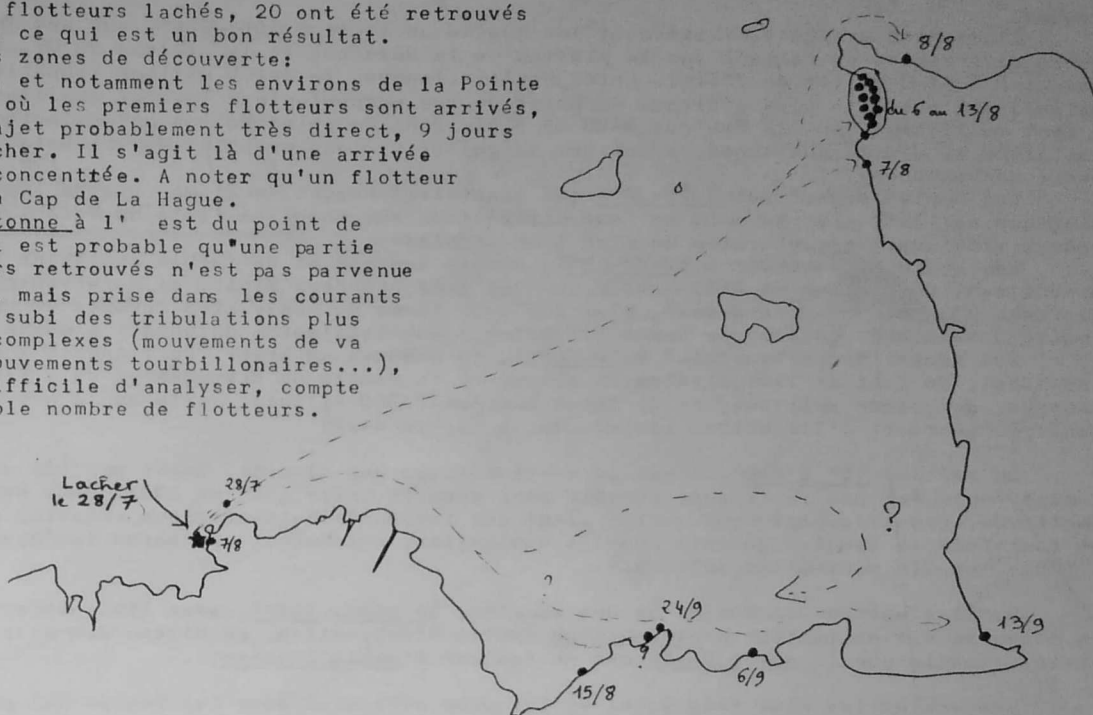 flotteurs lachés, 20 ont été retrouvés
ce qui est un bon résultat.
zones de découverte:
et notamment les environs de la Pointe
où les premiers flotteurs sont arrivés,
ajet probablement très direct, 9 jours
cher. Il s'agit là d'une arrivée
concenttée. A noter qu'un flotteur
Cap de La Hague.
tonne à l' est du point de
est probable qu"une partie
rs retrouvés n'est pas parvenue
mais prise dans les courants
subi des tribulations plus
complexes (mouvements de va
ouvements tourbillonaires...),
fficile d'analyser, compte
ble nombre de flotteurs.
8/8
du 6 au 13/8
7/8
Lacher
le 28/7
28/7
?
7/8
?
?
24/9
?
13/9
15/8
6/9